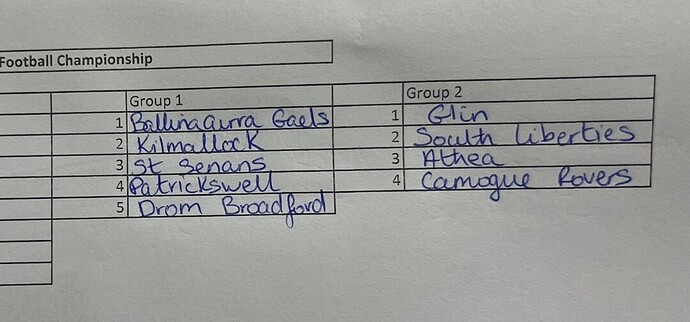 Football Championship
Group 1 Group 2
1 Ballinacurra Gaels 1 Glin
2 Kilmallock 2 South Liberties
3 St Senans 3 Athea
4 Patrickswell 4 Camogue Rovers
5 Drom Broadford